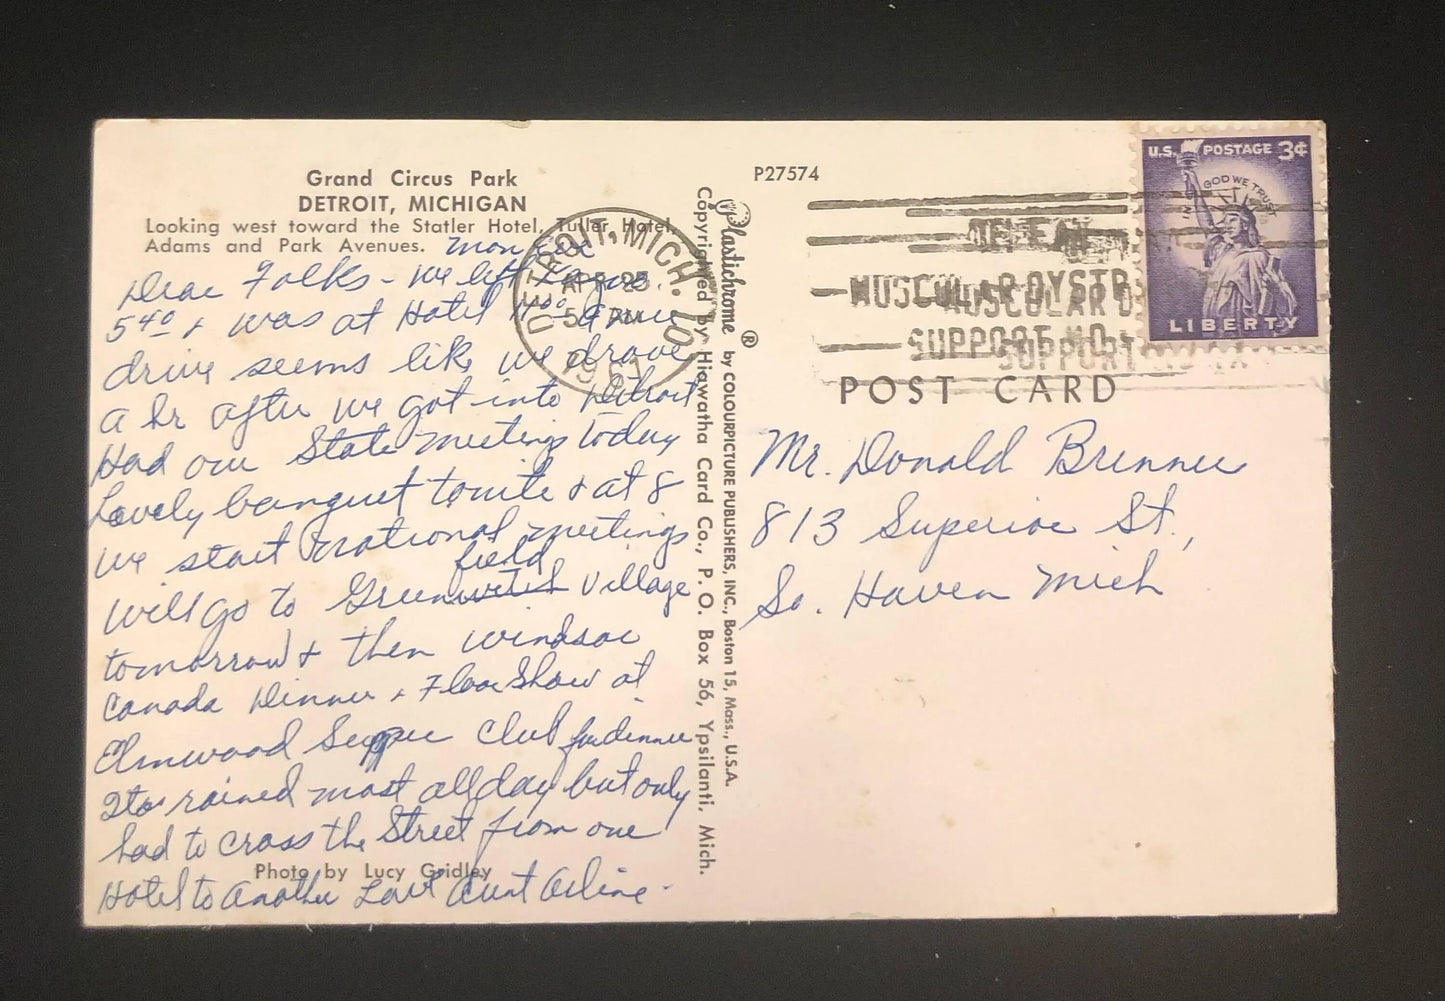 Grand Circus Park
DETROIT, MICHIGAN
Looking west toward the Statler Hotel, Tuller Hotel,
Adams and Park Avenues.
Mon Eve
Dear Folks - we left
5 40 + was at Hotel 11 00 a nice
drive seems like we drove
a hr after we got into Detroit
Had our State meeting today
Lovely banquet tonite + at 8
we start national meetings
will go to Greenfield Village
tomorrow + then Windsor
Canada Dinner + Floor Show at
Elmwood Supper Club for dinner
Its rained most all day but only
had to cross the Street from one
Hotel to another Love Aunt Arline.
Photo by Lucy Gridley
DETROIT, MICH. 10
APR 23
5 AM
Plastichrome ® by COLOURPICTURE PUBLISHERS, INC., Boston 15, Mass., U.S.A.
Copyrighted by Hiawatha Card Co., P. O. Box 56, Ypsilanti, Mich.
P27574
MUSCULAR DYSTR
MUSCULAR D
SUPPORT
SUPPORT
U.S. POSTAGE 3¢
IN GOD WE TRUST
LIBERTY
POST CARD
Mr. Donald Brenner
813 Superior St.,
So. Haven Mich